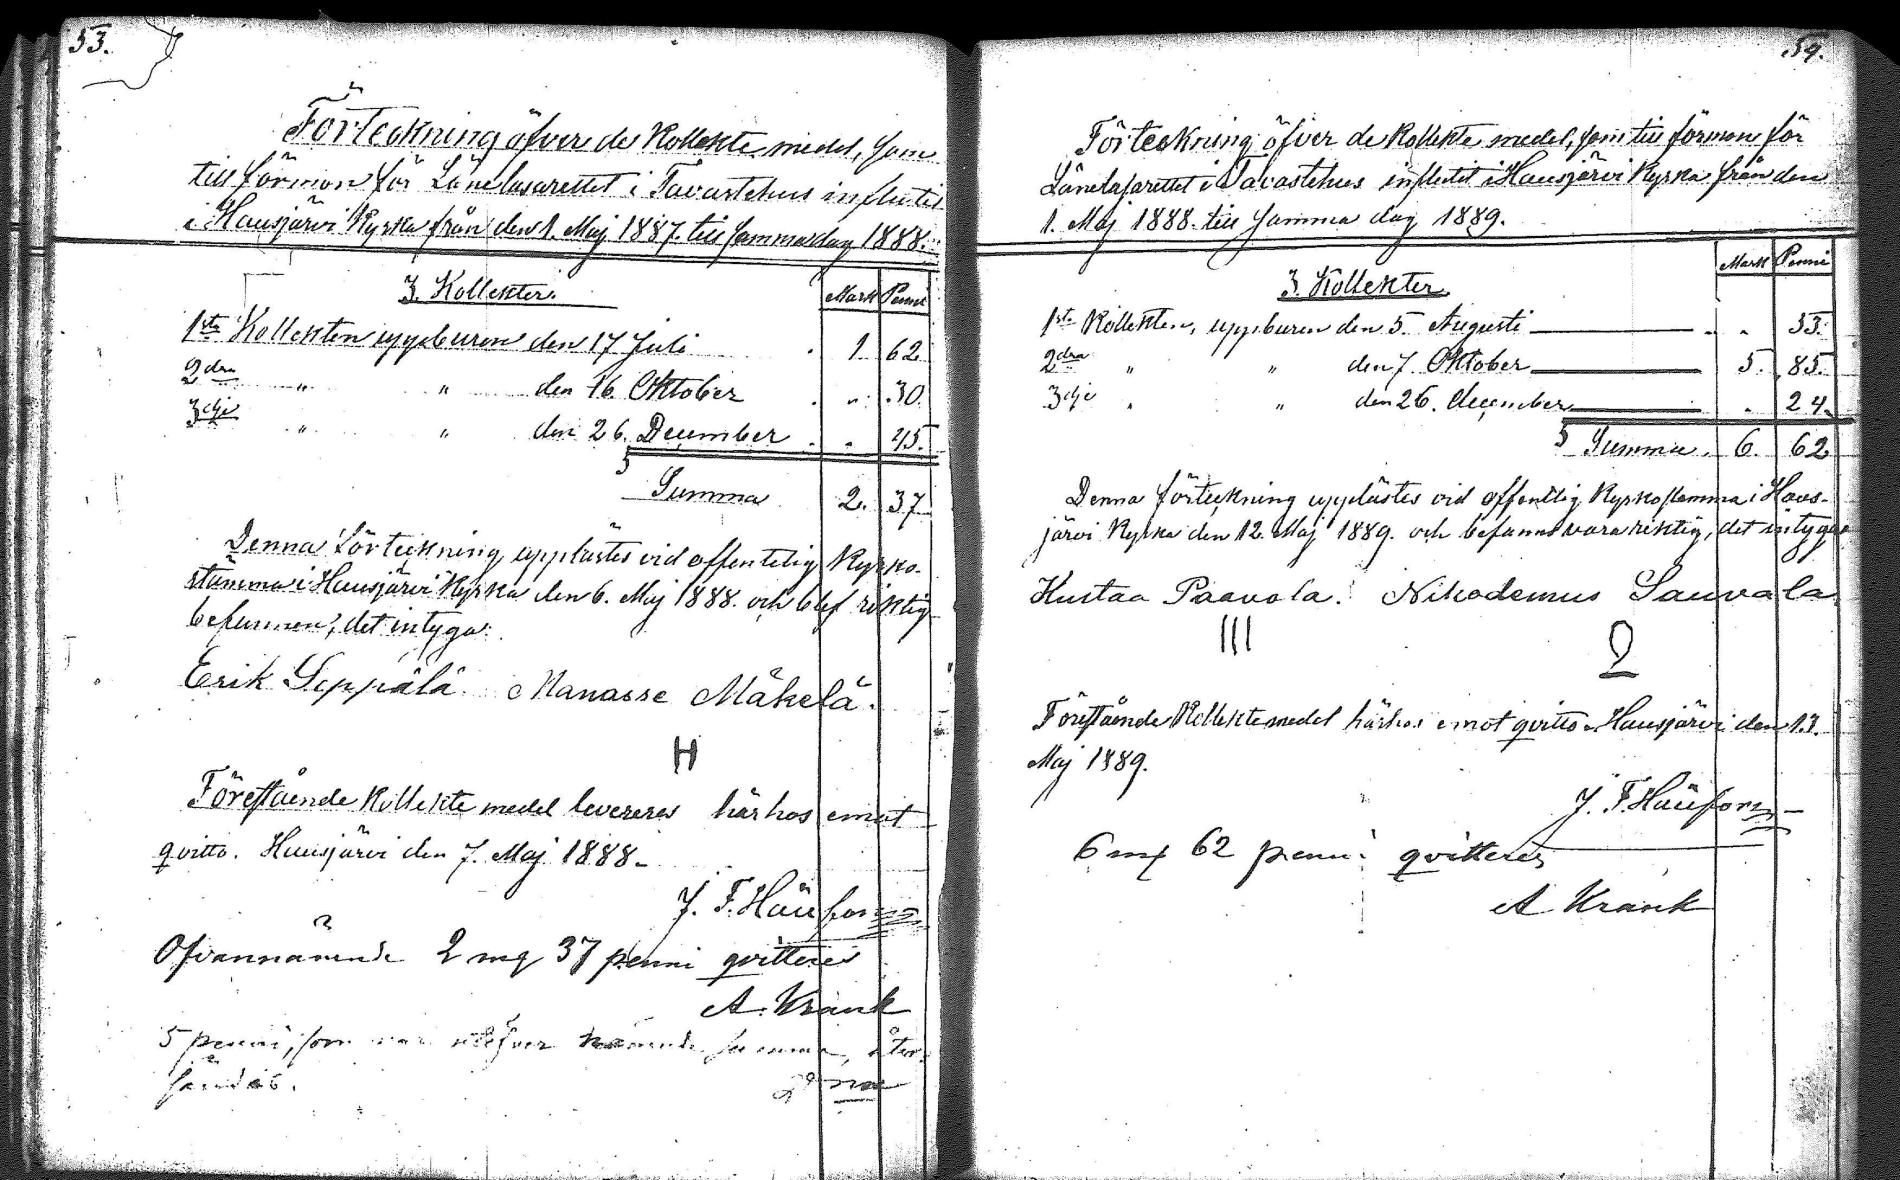 53.
Förteckning öfver de Kollekte medel, som
till förmon för Länelasarettet i Tavastehus influtit
i Hausjärvi Kyrka från den 1. Maj 1887. till samma dag 1888.
3. Kollekter. Mark Penni
1sta Kollekten uppburen den 17 Juli . 1 62
2dra " " den 16. Oktober . " 30
3dje " " den 26. December . " 45.
Summa 2. 37
Denna förteckning upplästes vid offentelig Kyrko-
stämma i Hausjärvi Kyrka den 6. Maj 1888. och blef riktig
befunnen, det intyga:
Erik Seppälä Manasse Mäkelä.
H
Förestående Kollekte medel levereras härhos emot
qvitto. Hausjärvi den 7. Maj 1888.
J. F.
Ofvannämnde 2 mq 37 penni qvitteras
A. Krank
5 penni, som utöfver nämnde summa, åter-
sändas.
54.
Förteckning öfver de Kollekte medel, som till förmon för
Länelasarettet i Tavastehus influtit i Hausjärvi Kyrka från den
1. Maj 1888. till samma dag 1889.
3. Kollekter. Mark Penni
1sta Kollekten, uppburen den 5. Augusti . " 53.
2dra " " den 7. Oktober 5. 85.
3dje " " den 26. December . 24.
Summa. 6. 62
Denna förteckning upplästes vid offentlig Kyrkostemma i Haus-
järvi Kyrka den 12. Maj 1889. och befanns vara riktig, det intyga
Kustaa Paavola. Nikodemus Sauvala
III
Förestående Kollekte medel härhos emot qvitto. Hausjärvi den 13.
Maj 1889.
J. F.
6 mq 62 penni qvitteras
A Krank